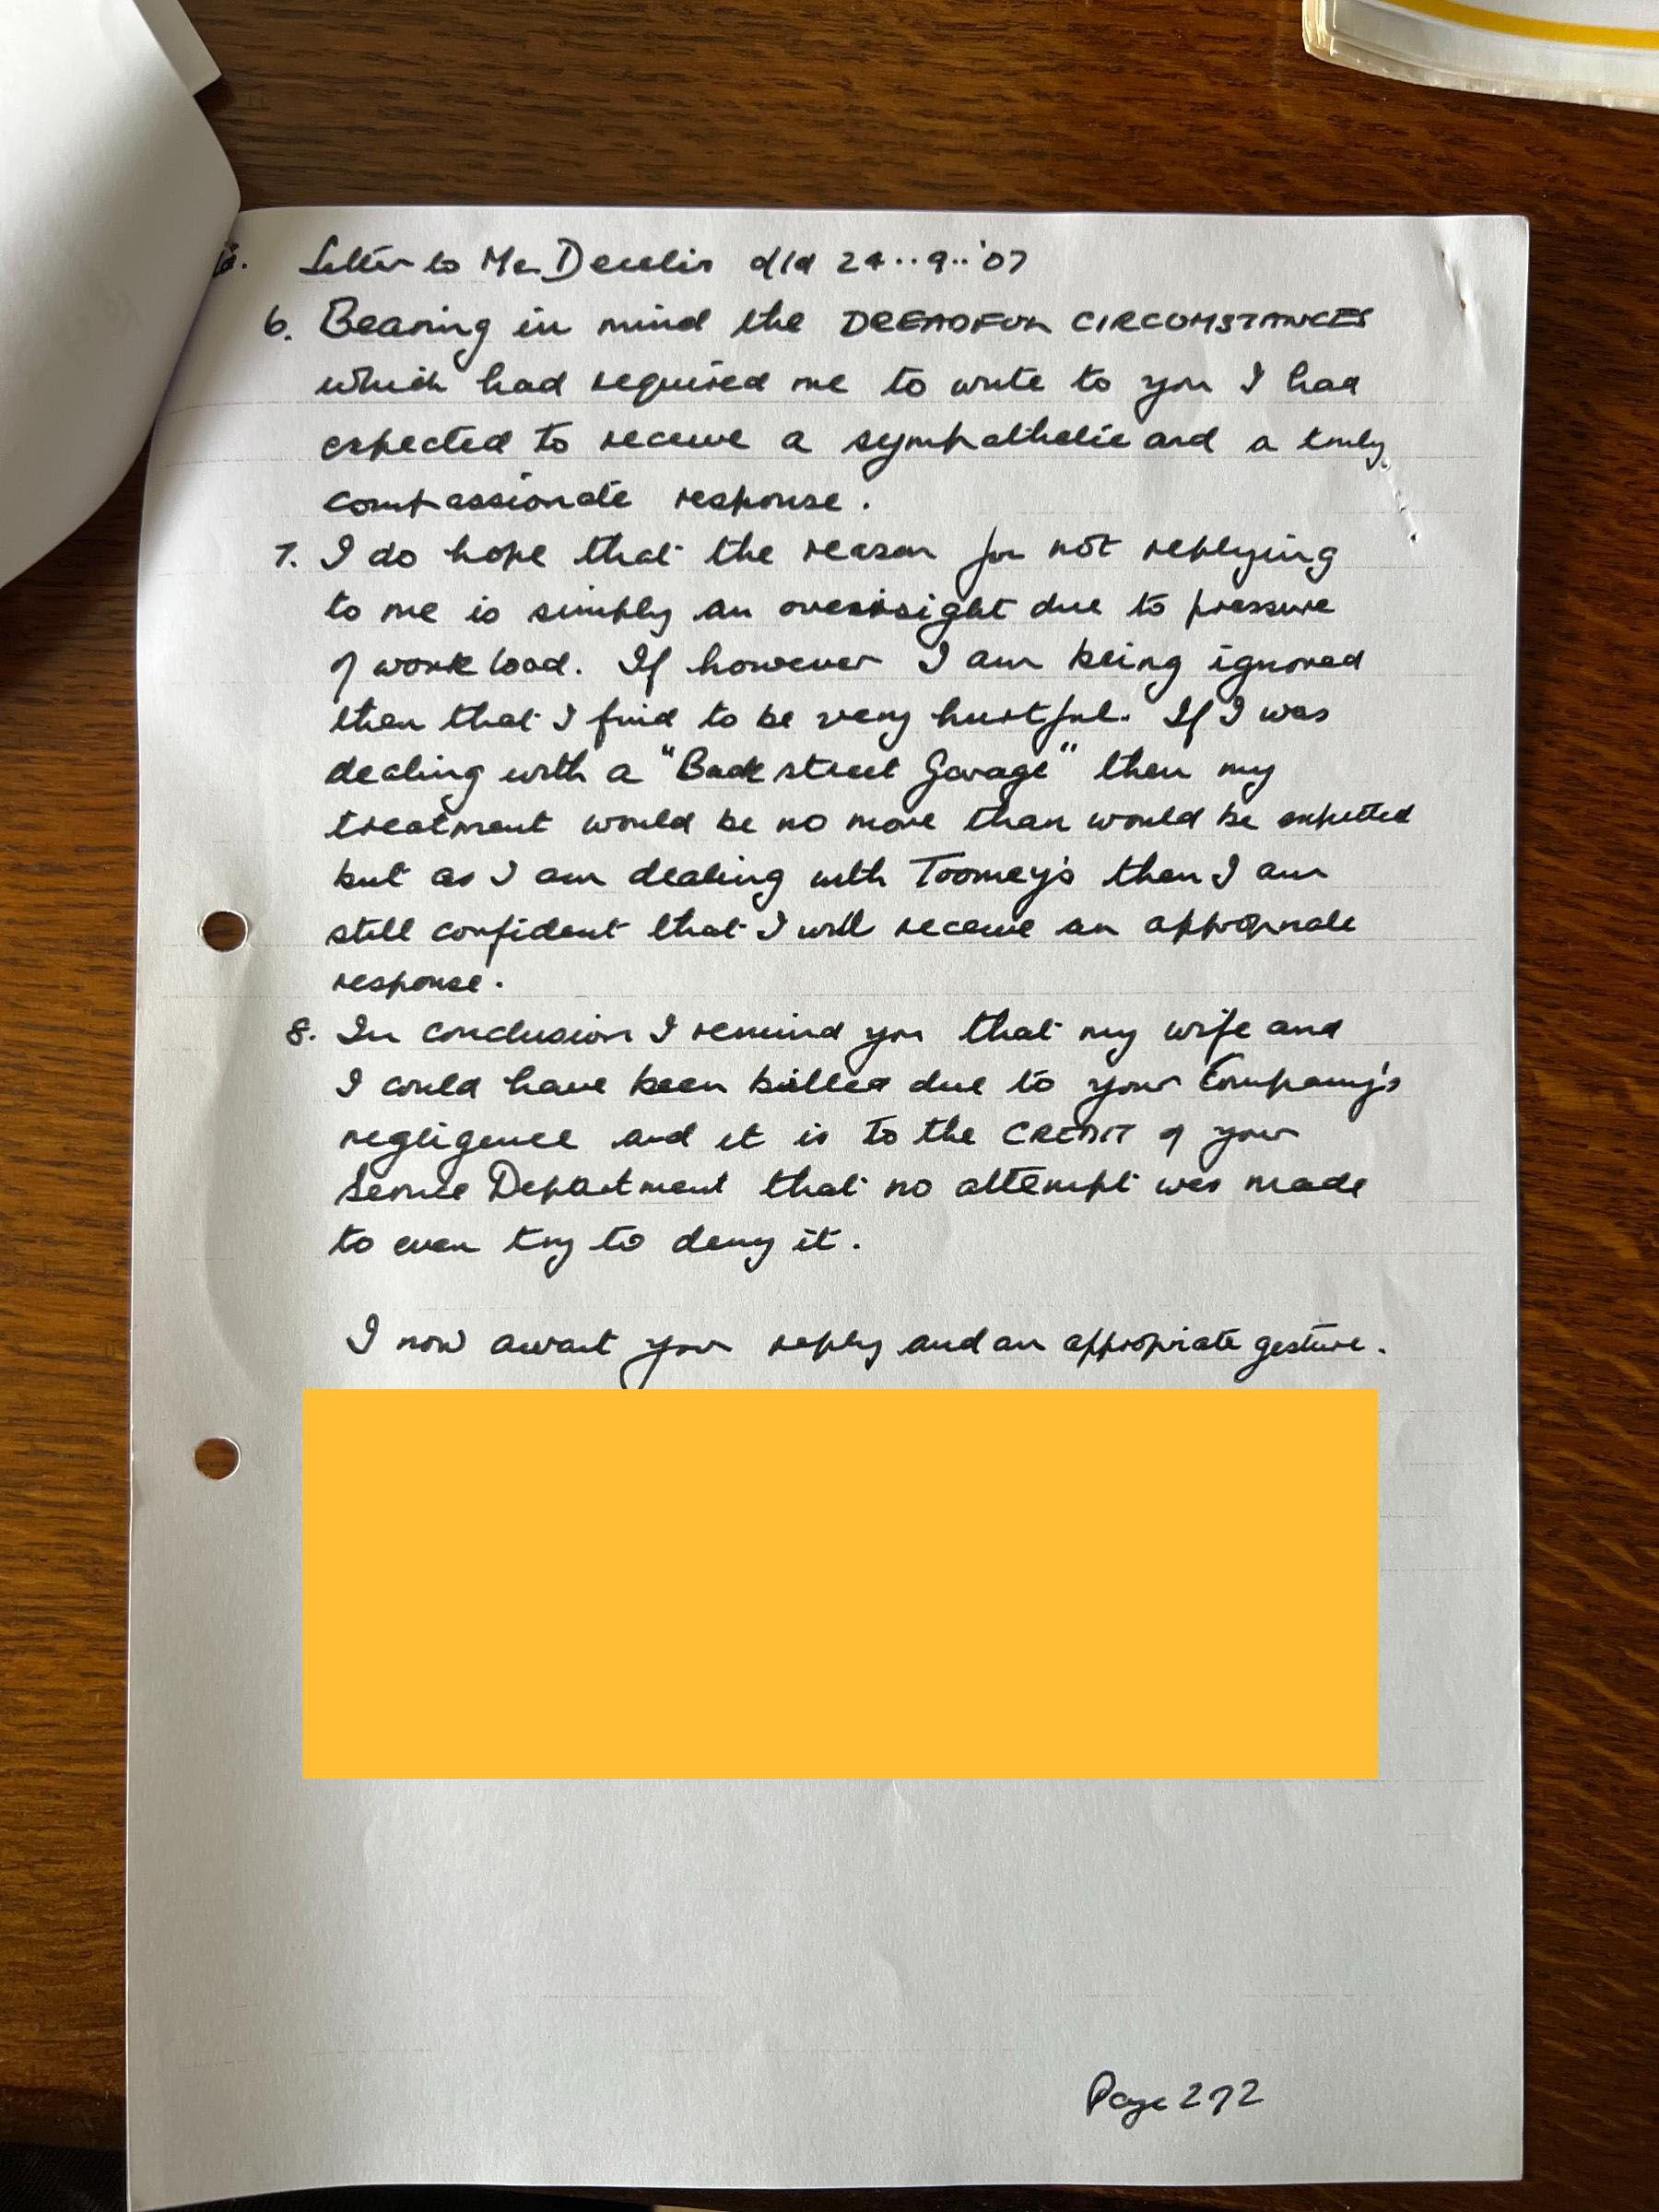 Letter to Mr. Decelis dtd 24..9..'07
6. Bearing in mind the DREADFUL CIRCUMSTANCES
which had required me to write to you I had
expected to receive a sympathetic and a truly
compassionate response.
7. I do hope that the reason for not replying
to me is simply an oversight due to pressure
of work load. If however I am being ignored
then that I find to be very hurtful. If I was
dealing with a "Back street Garage" then my
treatment would be no more than would be expected
but as I am dealing with Toomey's then I am
still confident that I will receive an appropriate
response.
8. In conclusion I remind you that my wife and
I could have been killed due to your Company's
negligence and it is to the CREDIT of your
Service Department that no attempt was made
to even try to deny it.
I now await your reply and an appropriate gesture.
Page 2 of 2